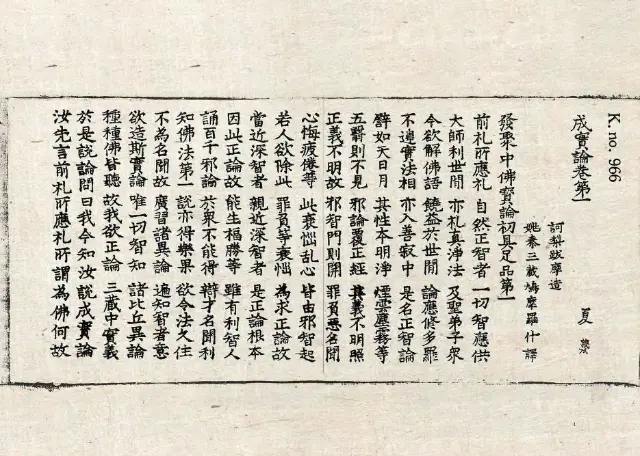 K. no. 966
成實論卷第一 夏
訶梨跋摩造
姚秦三藏鳩摩羅什譯
發聚中佛寶論初具足品第一
前礼所應礼 自然正智者 一切智應供
大師利世間 亦礼真淨法 及聖弟子衆
今欲解佛語 饒益於世間 論應修多羅
不違實法相 亦入善寂中 是名正智論
譬如天日月 其性本明淨 煙雲塵霧等
五翳則不見 邪論覆正經 其義不明照
正義不明故 邪智門則開 罪負惡名聞
心悔疲倦等 此衰惱乱心 皆由邪智起
若人欲除此 罪負等衰惱 為求正論故
當近深智者 親近深智者 是正論根本
因此正論故 能生福勝等 雖有利智人
誦百千邪論 於衆不能得 辯才名聞利
知佛法第一 說亦得樂果 欲令法久住
不為名聞故 廣習諸異論 遍知智者意
欲造斯實論 唯一切智知 諸比丘異論
種種佛皆聽 故我欲正論 三藏中實義
於是說論問曰我今知汝說成實論
汝先言前礼所應礼所謂為佛何故